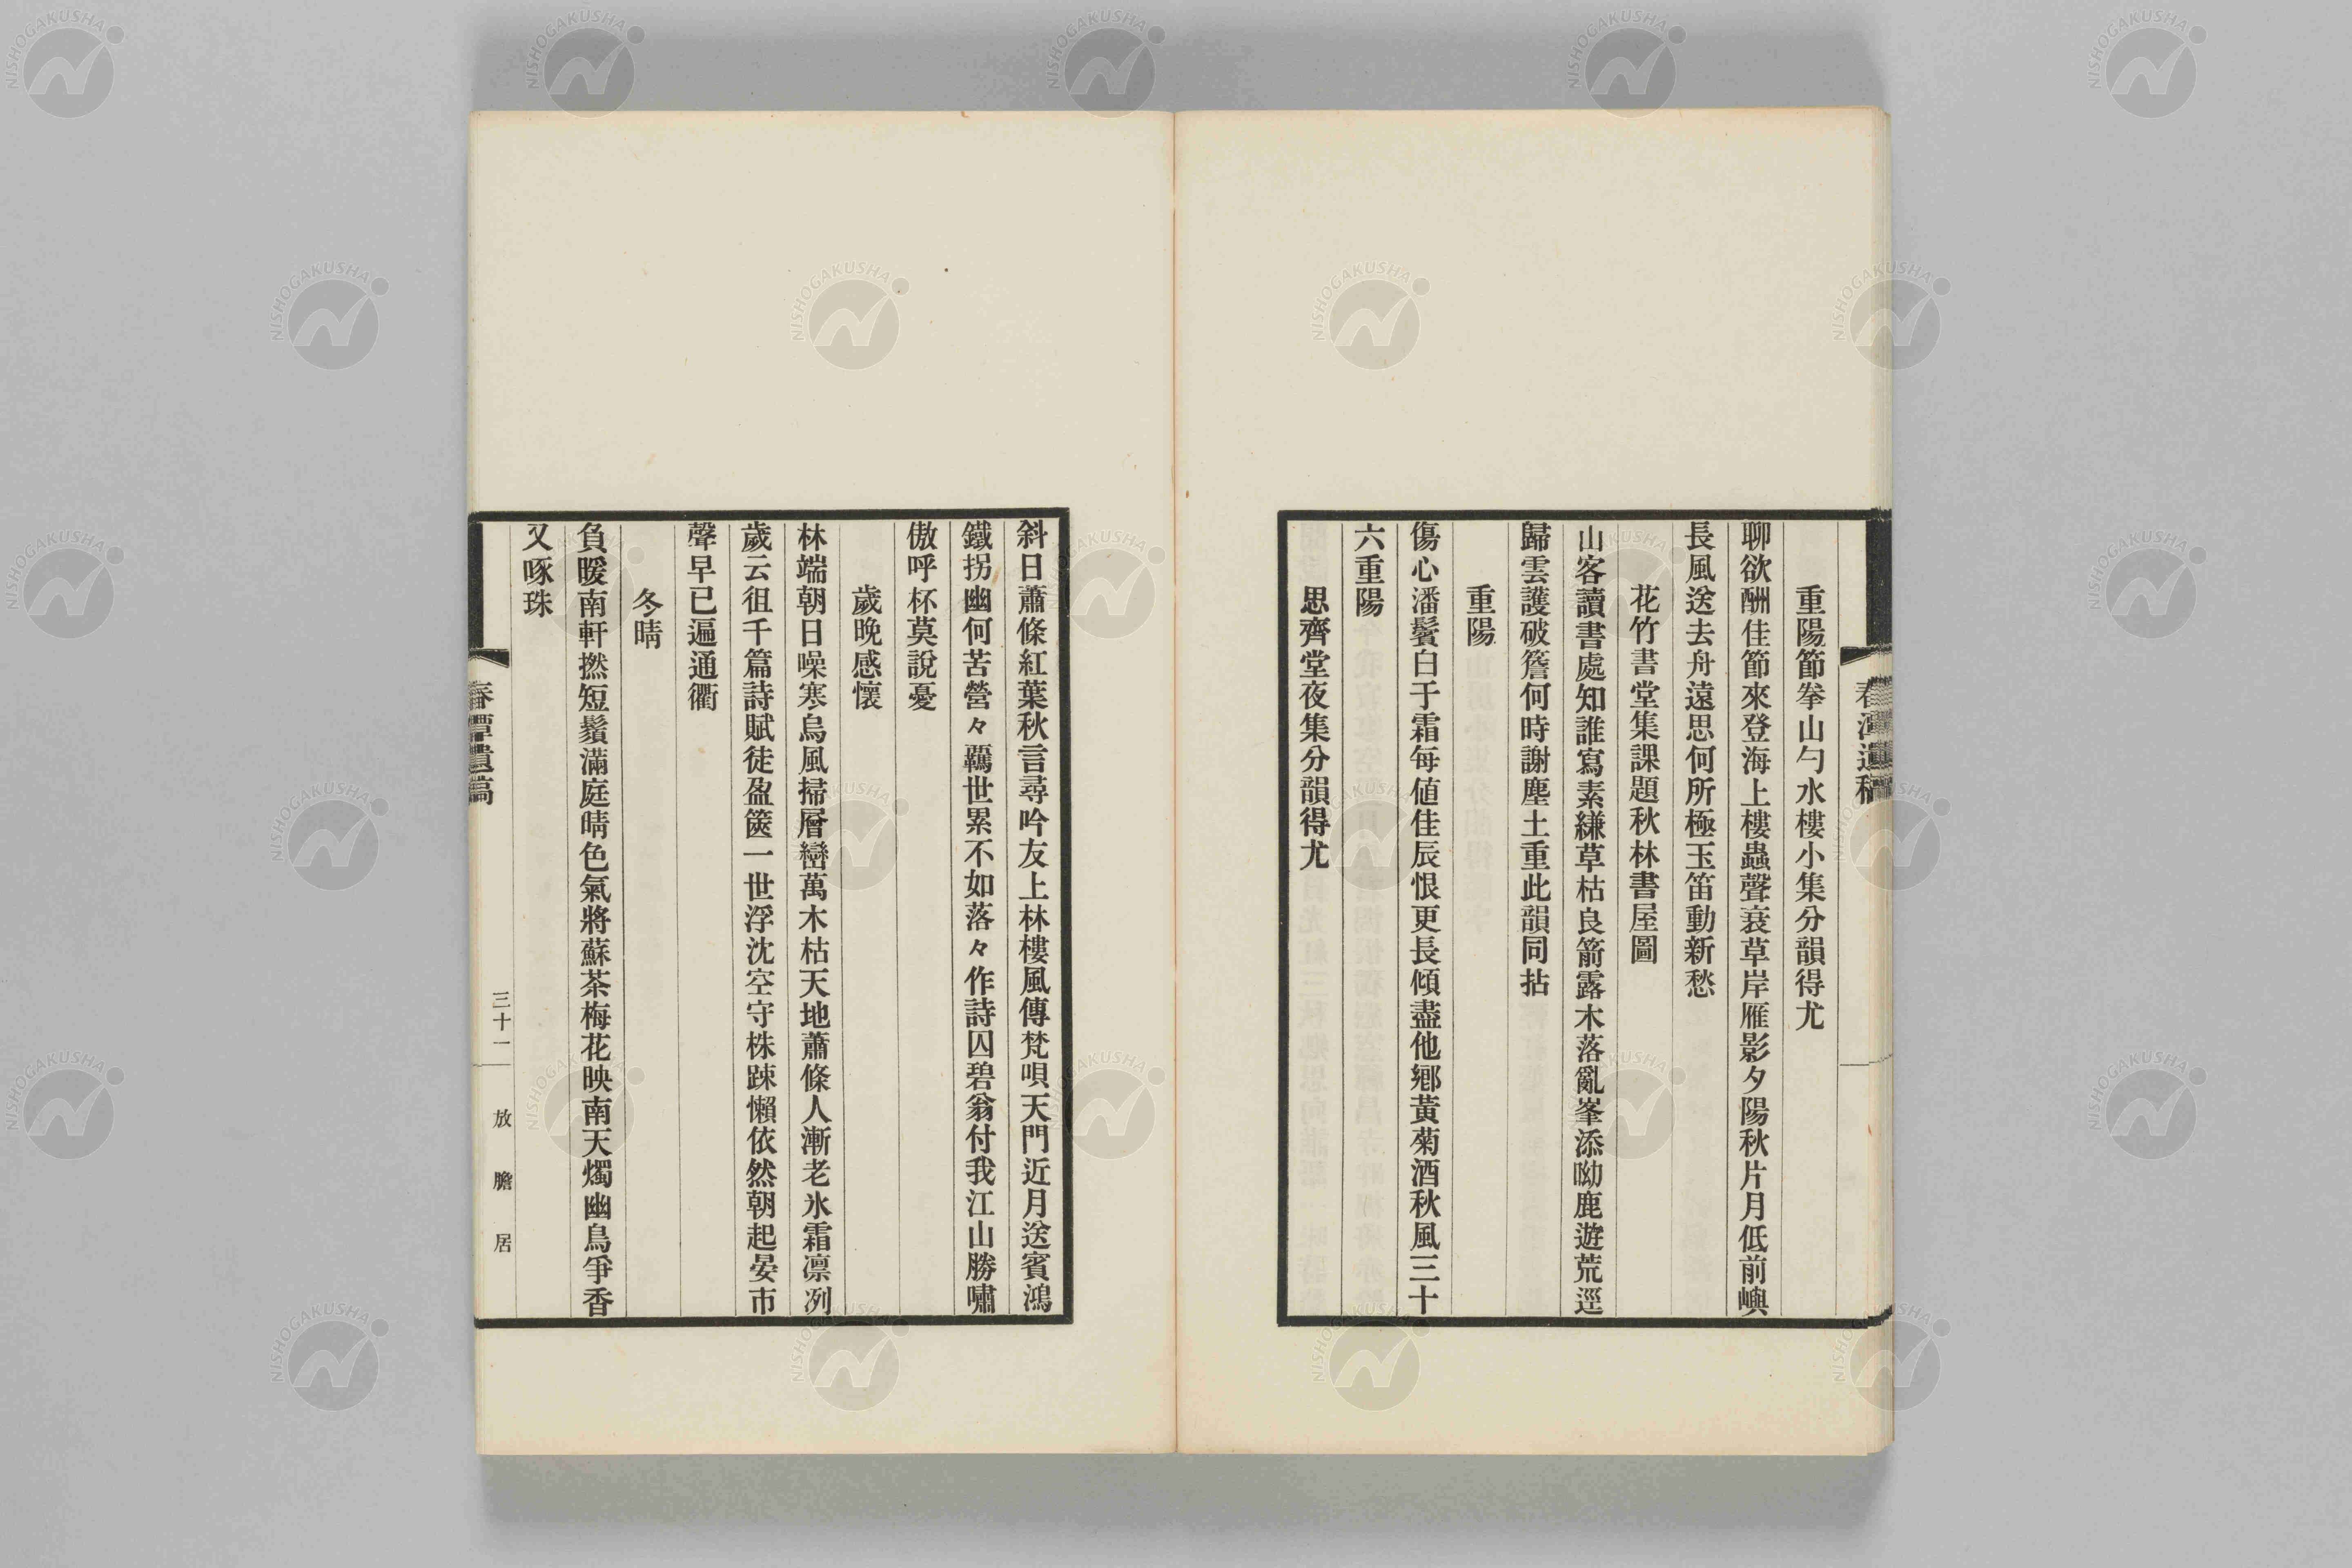 春潭遺稿
重陽節拳山勺水樓小集分韻得尤
聊欲酬佳節來登海上樓蟲聲衰草岸雁影夕陽秋片月低前嶼
長風送去舟遠思何所極玉笛動新愁
花竹書堂集課題秋林書屋圖
山客讀書處知誰寫素縑草枯良箭露木落亂峯添呦鹿遊荒逕
歸雲護破簷何時謝塵土重此韻同拈
重陽
傷心潘鬢白于霜每値佳辰恨更長傾盡他鄕黃菊酒秋風三十
六重陽
思齊堂夜集分韻得尤
斜日蕭條紅葉秋言尋吟友上林樓風傳梵唄天門近月送賓鴻
鐵拐幽何苦營々覊世累不如落々作詩囚碧翁付我江山勝嘯
傲呼杯莫說憂
歲晚感懷
林端朝日噪寒烏風掃層巒萬木枯天地蕭條人漸老氷霜凛冽
歲云徂千篇詩賦徒盈篋一世浮沈空守株踈懶依然朝起晏市
聲早已遍通衢
冬晴
負暖南軒撚短鬚滿庭晴色氣將蘇茶梅花映南天燭幽鳥爭香
又啄珠
春潭遺稿
三十一
放膽居
NISHOGAKUSHA